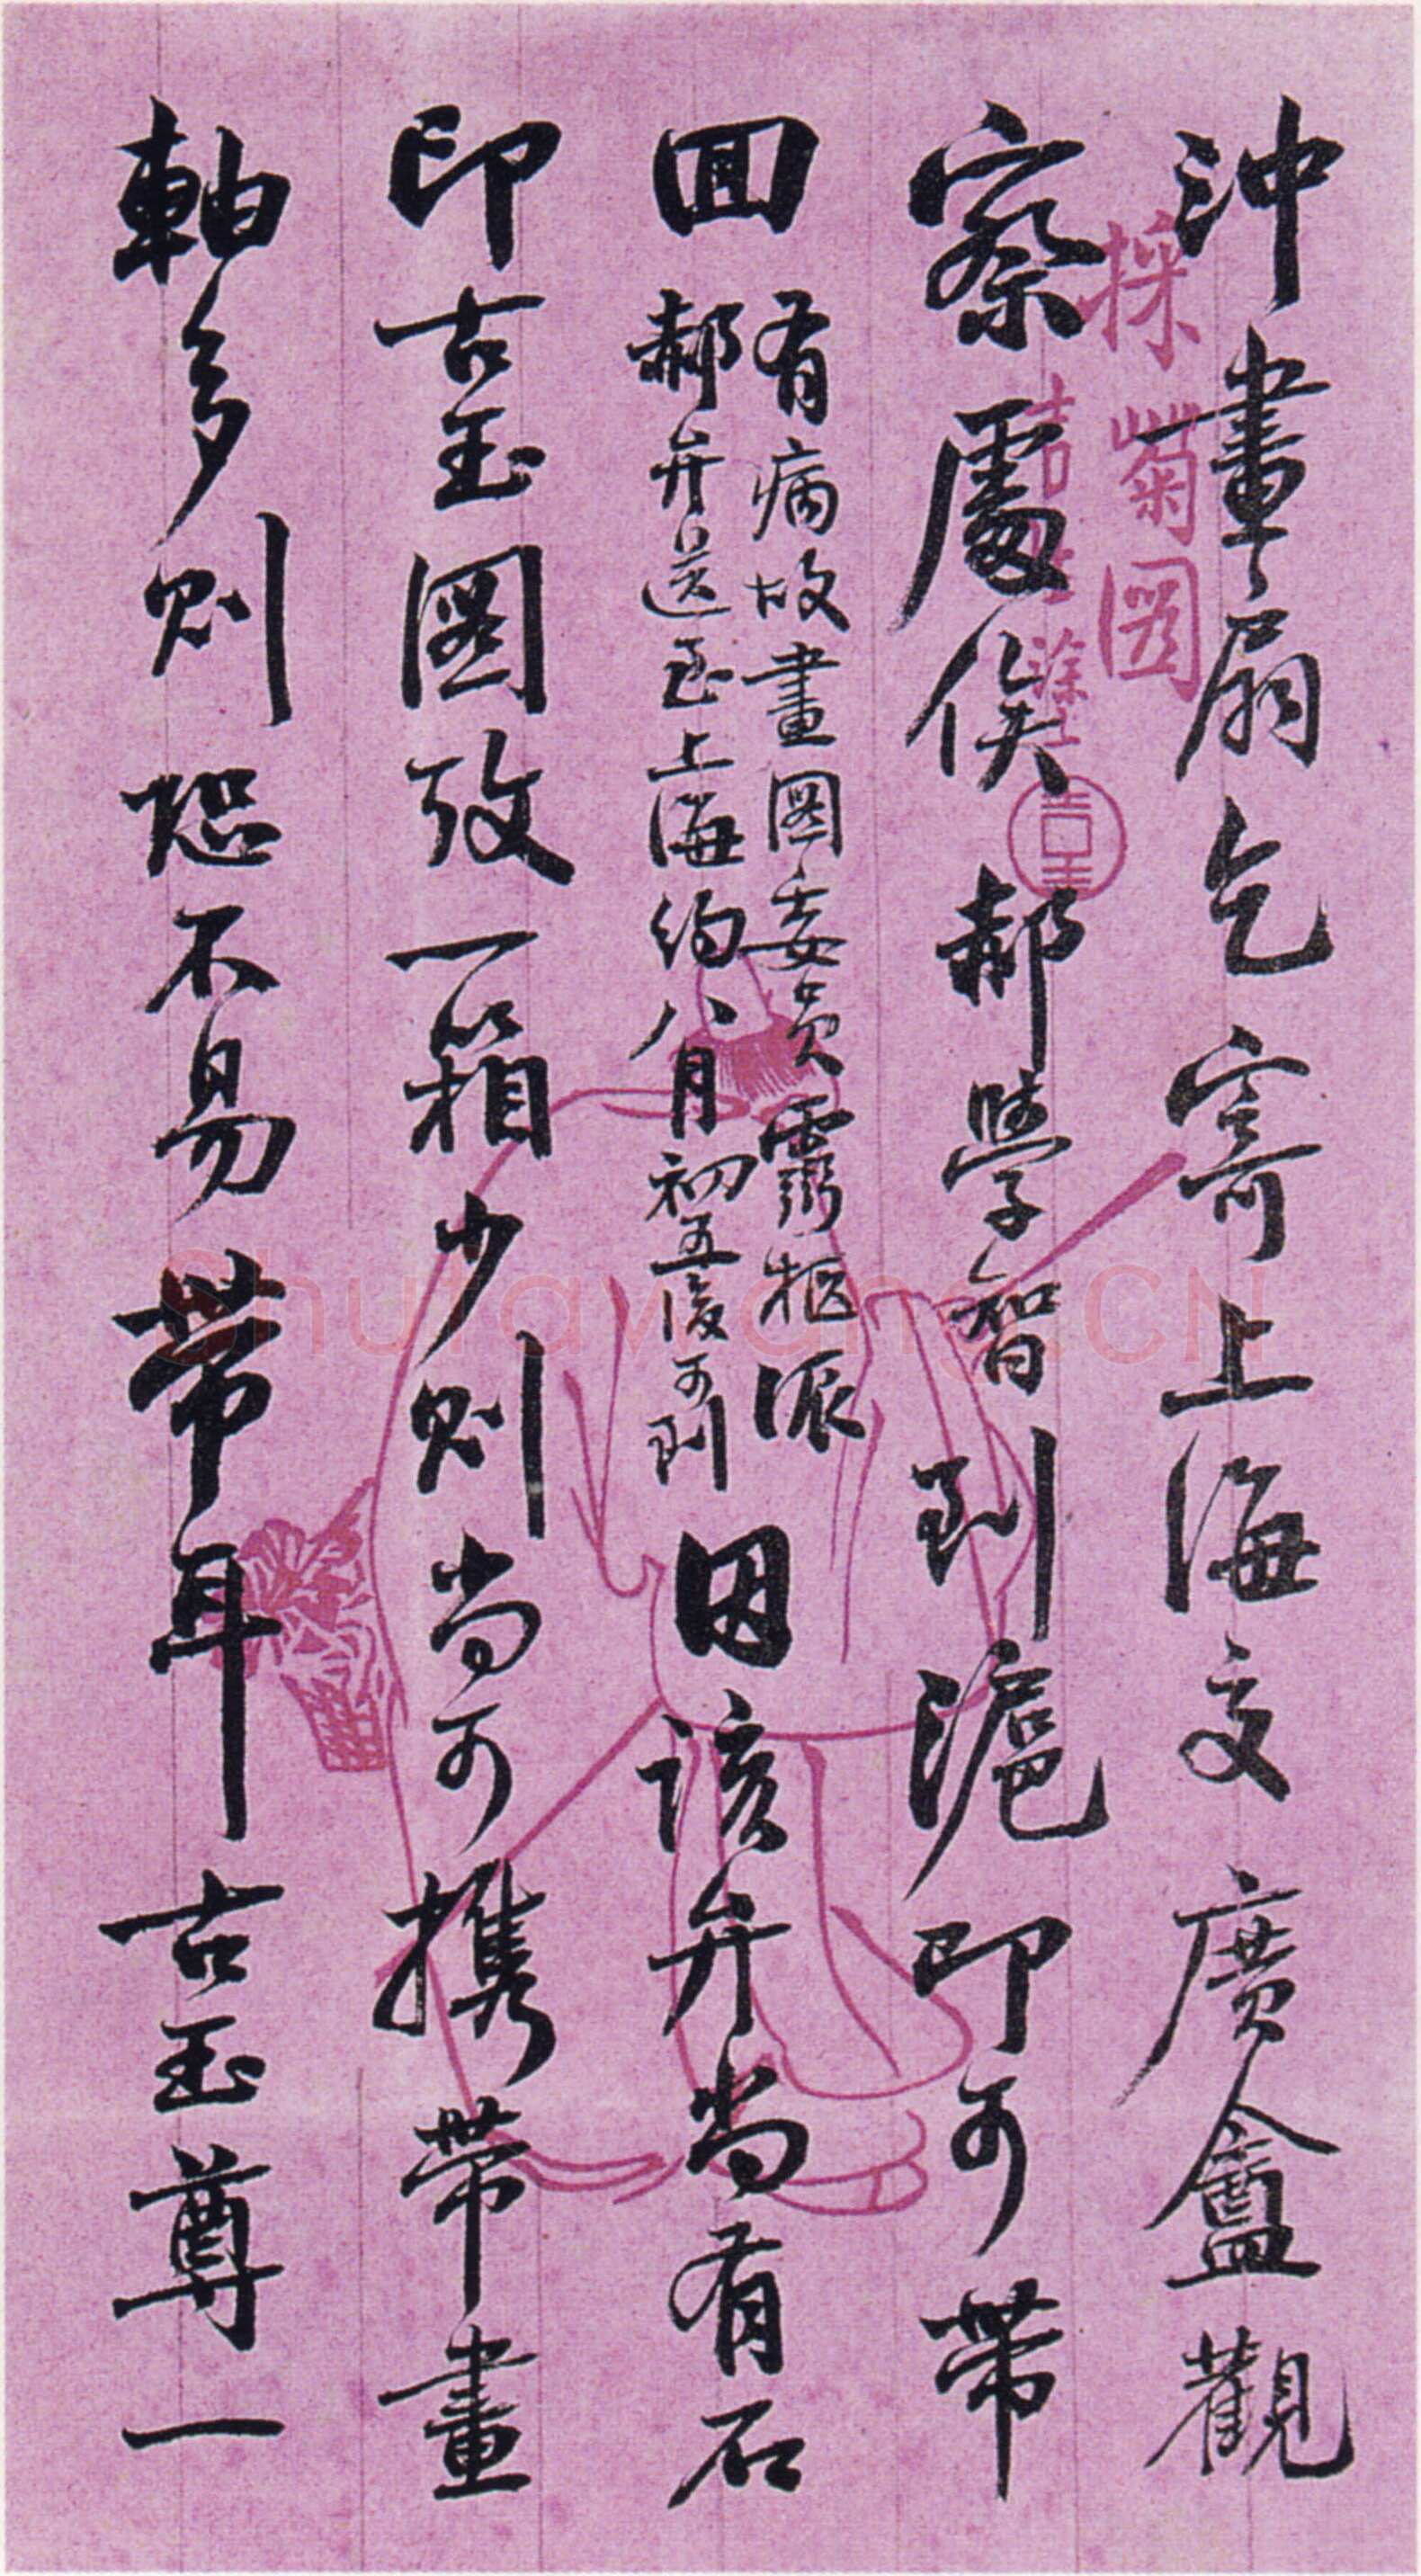 沖畫扇乞寄上海交廣盦觀
察處俟郝學智到滬即可帶
回
有病故畫圖委員靈柩派
郝弁送至上海約八月初五後可到
因該弁尚有石
印古玉圖攷一箱少則尚可攜帶畫
軸多則恐不易帶耳古玉尊一
採菊圖
吉
Shufawang.CN